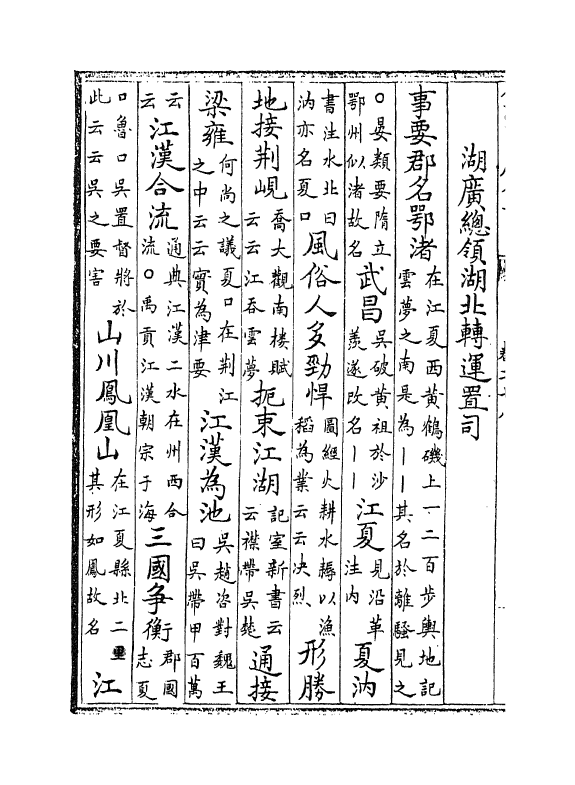 湖廣總領湖北轉運置司
事要郡名鄂渚在江夏西黄鶴磯上一二百步輿地記雲夢之南是為丨丨其名於離騷見之
○晏類要隋立鄂州似渚故名武昌吳破黄祖於沙羨遂改名丨丨江夏見沿革注内夏汭
書注水北曰汭亦名夏口風俗人多勁悍圖經火耕水耨以漁稻為業云云决烈形勝
地接荆峴喬大觀南楼賦云云江吞雲夢扼束江湖記室新書云云襟帶吳楚通接
梁雍何尚之議夏口在荆江之中云云實為津要江漢為池吳趙咨對魏王曰吳帶甲百萬
云云江漢合流通典江漢二水在州西合流○禹貢江漢朝宗于海三國争衡郡國志夏
口魯口吳置督將於此云云吳之要害山川鳳凰山在江夏縣北二里其形如鳳故名江